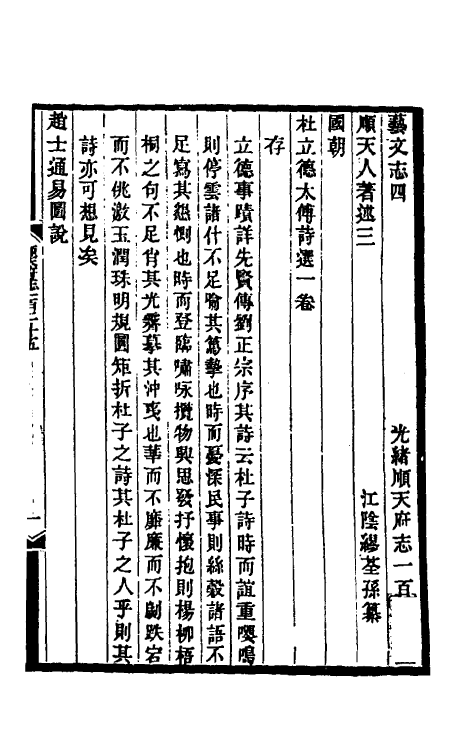 藝文志四　光緒順天府志一百
順天人著述三　江陰繆荃孫纂
國朝
杜立德太傅詩選一卷
存
立德事蹟詳先賢傳劉正宗序其詩云杜子詩時而誼重嚶鳴
則停雲諸什不足喻其篤摯也時而憂深民事則絲穀諸語不
足寫其惻也時而登臨嘯咏攬物興思發抒懷抱則楊柳梧
桐之句不足肖其光霽摹其沖夷也華而不靡廉而不劌跌宕
而不佻激玉潤珠明規圓矩折杜子之詩其杜子之人乎則其
詩亦可想見矣
趙士通易圖說